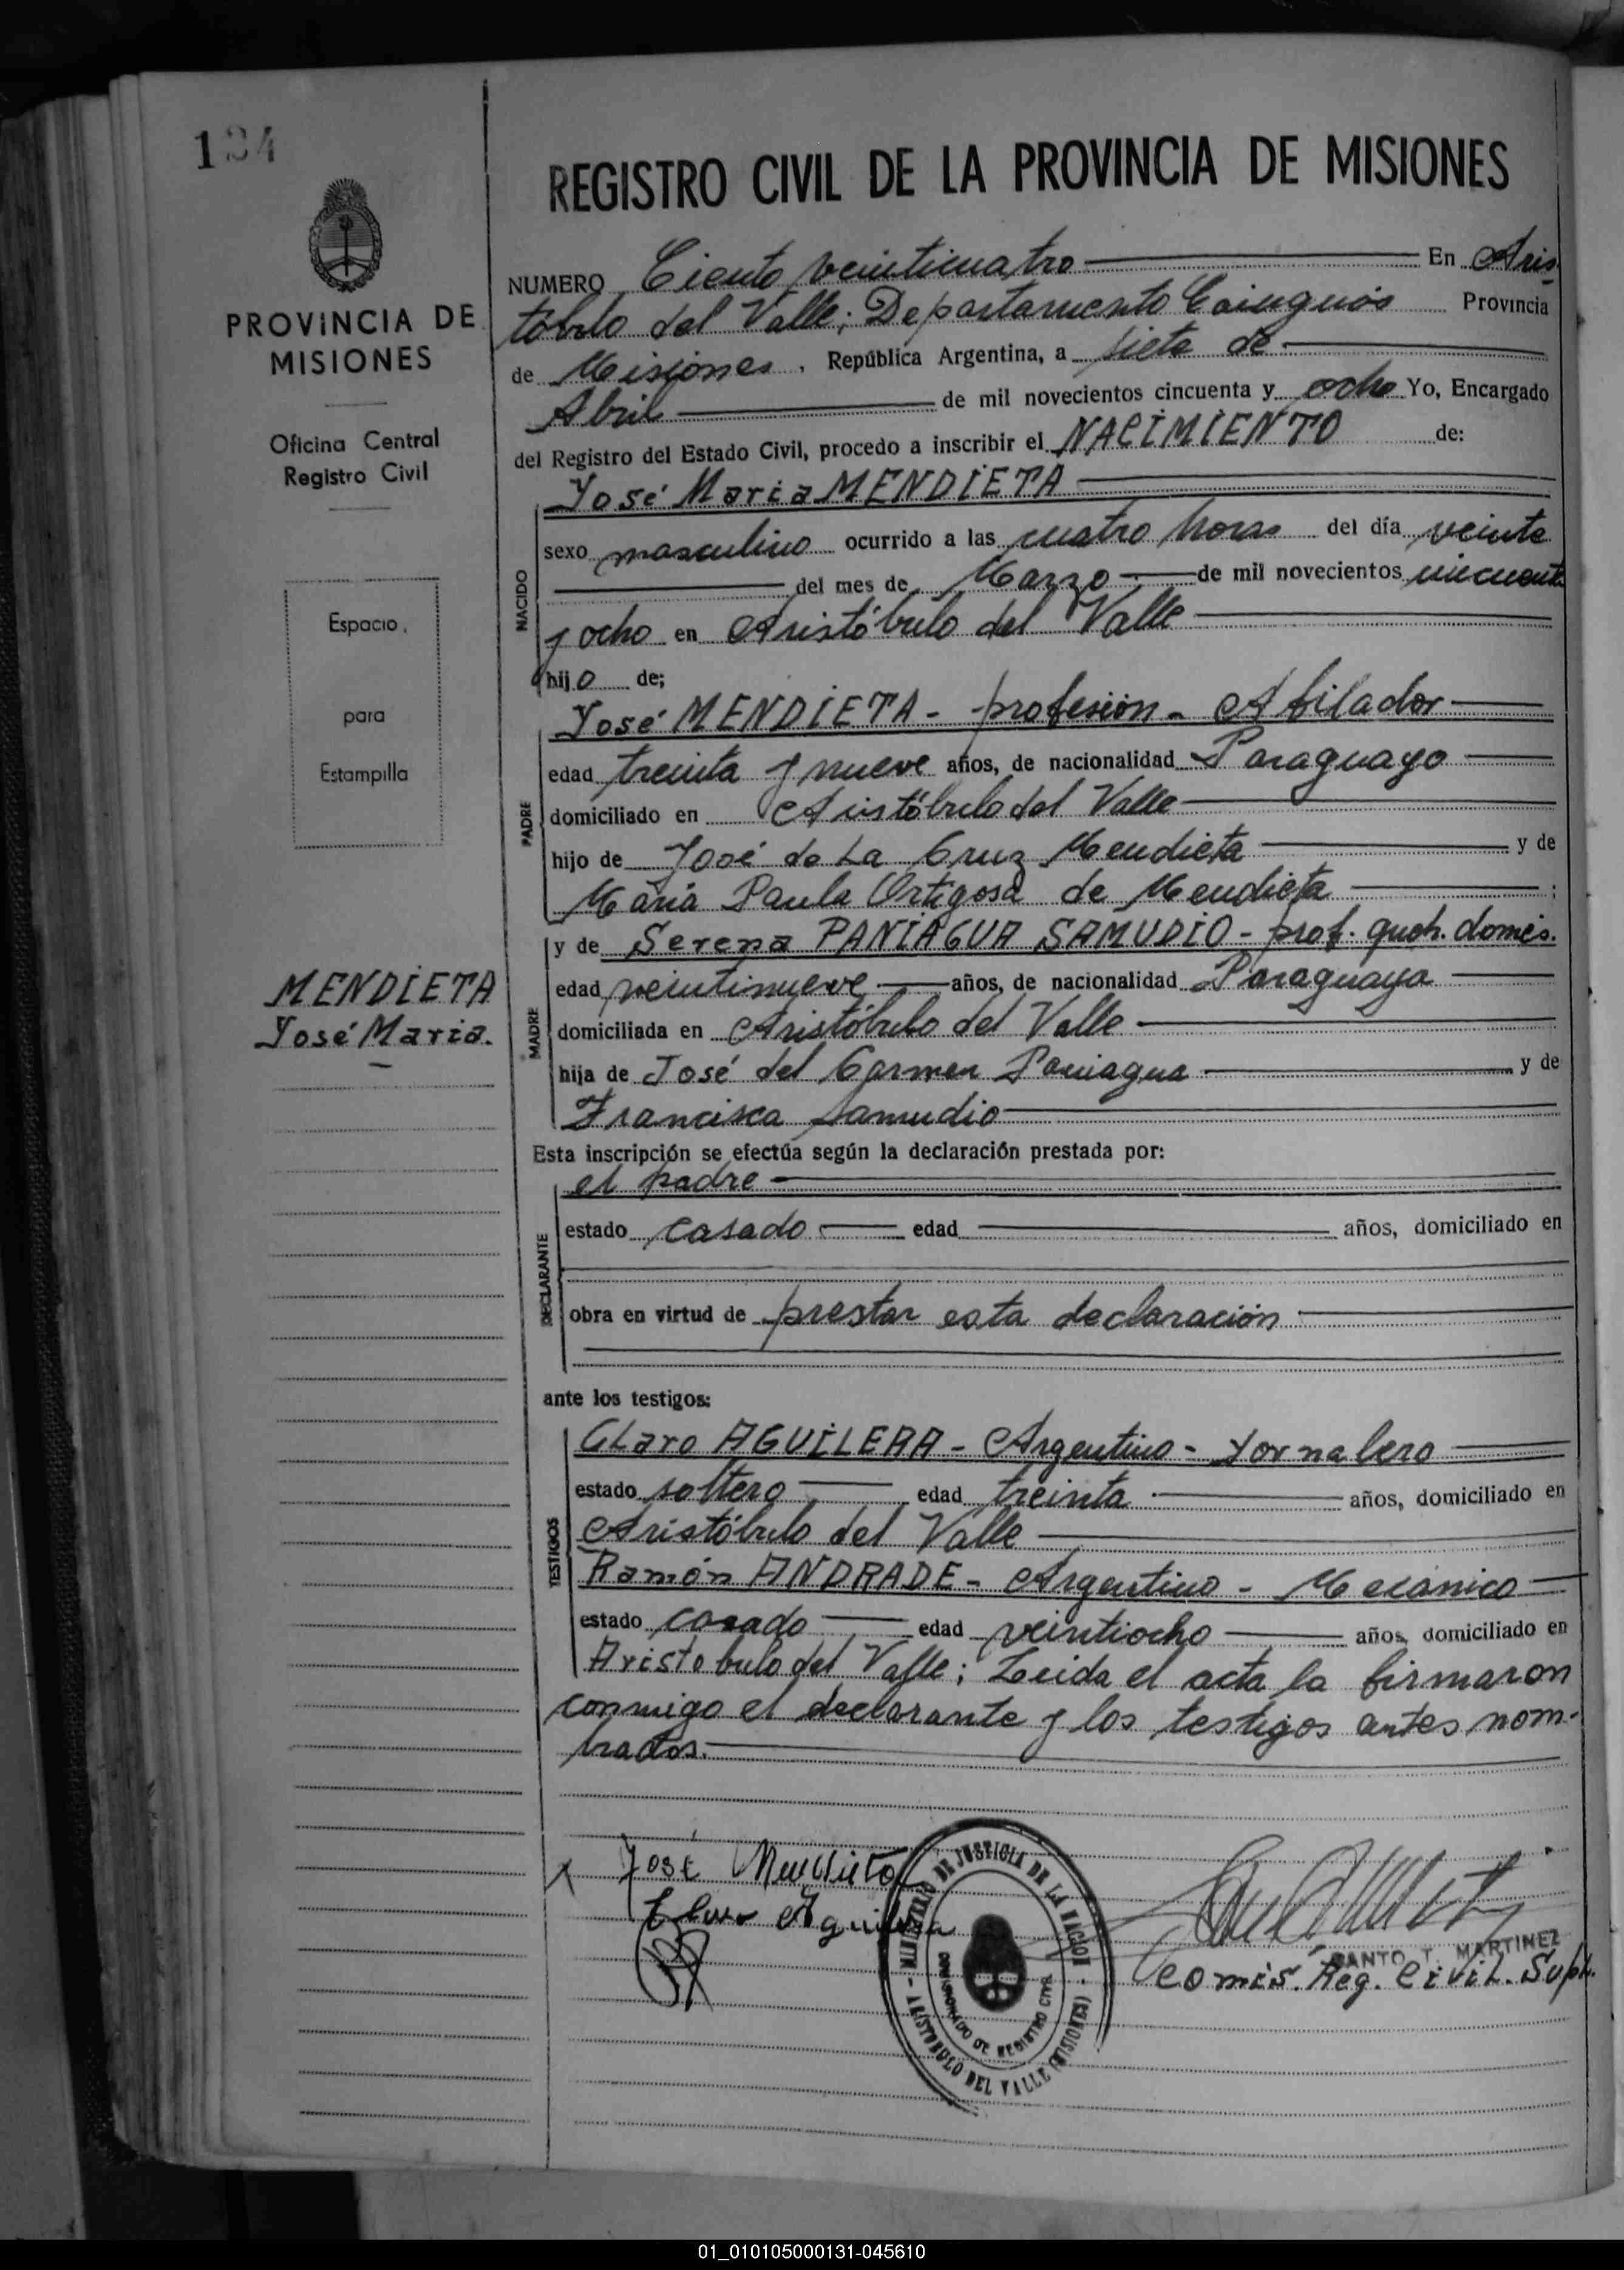 134
REGISTRO CIVIL DE LA PROVINCIA DE MISIONES
PROVINCIA DE
MISIONES
Oficina Central
Registro Civil
Espacio
para
Estampilla
MENDIETA
José Maria.
NUMERO Ciento veinticuatro En Aris
tóbulo del Valle; Departamento Cainguás Provincia
de Misiones, República Argentina, a siete de
Abril de mil novecientos cincuenta y ocho Yo, Encargado
del Registro del Estado Civil, procedo a inscribir el NACIMIENTO de:
José Maria MENDIETA
NACIDO
sexo masculino ocurrido a las cuatro horas del día veinte
del mes de Marzo de mil novecientos cincuenta
y ocho en Aristóbulo del Valle
hijo de;
PADRE
José MENDIETA - profesión - Afilador
edad treinta y nueve años, de nacionalidad Paraguayo
domiciliado en Aristóbulo del Valle
hijo de José de La Cruz Mendieta y de
Maria Paula Ortigosa de Mendieta ;
MADRE
y de Serena PANIAGUA SAMUDIO - prof. queh. domés.
edad veintinueve años, de nacionalidad Paraguaya
domiciliada en Aristóbulo del Valle
hija de José del Carmen Paniagua y de
Francisca Samudio
Esta inscripción se efectúa según la declaración prestada por:
DECLARANTE
el padre
estado casado edad años, domiciliado en
obra en virtud de prestar esta declaración
ante los testigos:
TESTIGOS
CLaro AGUILERA - Argentino - Jornalero
estado soltero edad treinta años, domiciliado en
Aristóbulo del Valle
Ramón ANDRADE - Argentino - Mecánico
estado casado edad veintiocho años, domiciliado en
Aristobulo del Valle; Leida el acta la firmaron
conmigo el declarante y los testigos antes nom-
brados.
José Mendieta
Claro Aguilera
MINISTERIO DE JUSTICIA DE LA NACION
COMISIONADO DE REGISTRO CIVIL
ARISTOBULO DEL VALLE (MISIONES)
SANTO T. MARTINEZ
Comis. Reg. Civil. Supl.
01_010105000131-045610